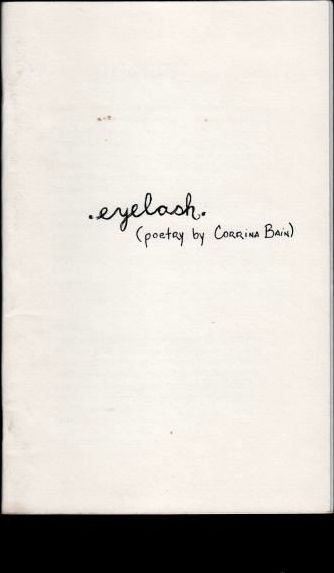 .eyelash.
(poetry by CORRINA BAIN)